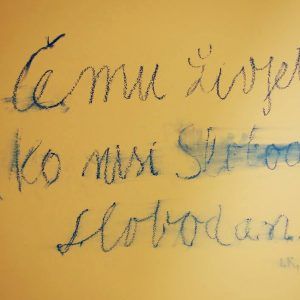 Čemu živjet
ko nisi Slobod
slobodan.